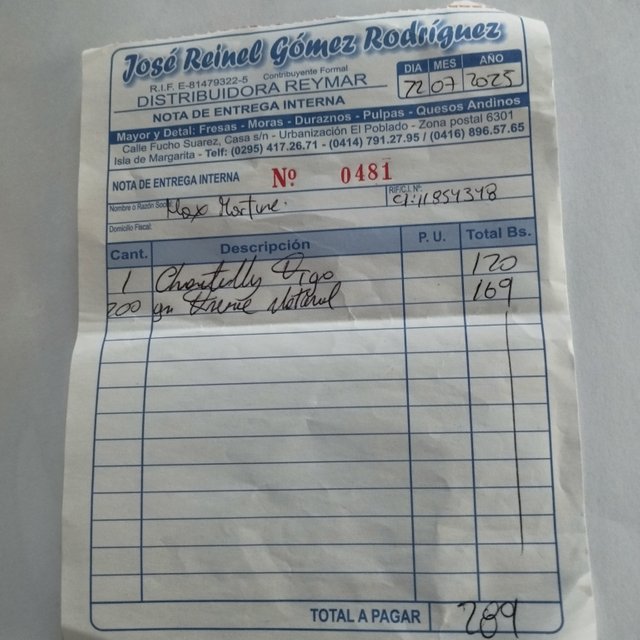 José Reinel Gómez Rodríguez
R.I.F. E-81479322-5 Contribuyente Formal
DISTRIBUIDORA REYMAR
NOTA DE ENTREGA INTERNA
DIA MES AÑO
22 07 2025
Mayor y Detal: Fresas - Moras - Duraznos - Pulpas - Quesos Andinos
Calle Fucho Suarez, Casa s/n - Urbanización El Poblado - Zona postal 6301
Isla de Margarita - Telf: (0295) 417.26.71 - (0414) 791.27.95 / (0416) 896.57.65
NOTA DE ENTREGA INTERNA Nº 0481
Nombre o Razón Social
RIF/C.I. Nº:
CI: 11854348
Domicilio Fiscal:
Cant. Descripción P. U. Total Bs.
1 Chantilly 120
200 gr 169
TOTAL A PAGAR 289